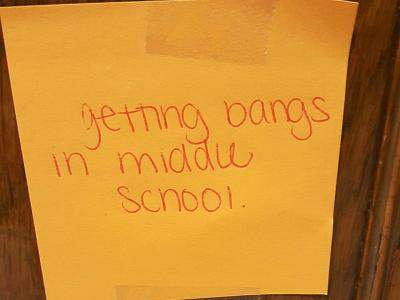 getting bangs
in middle
school.